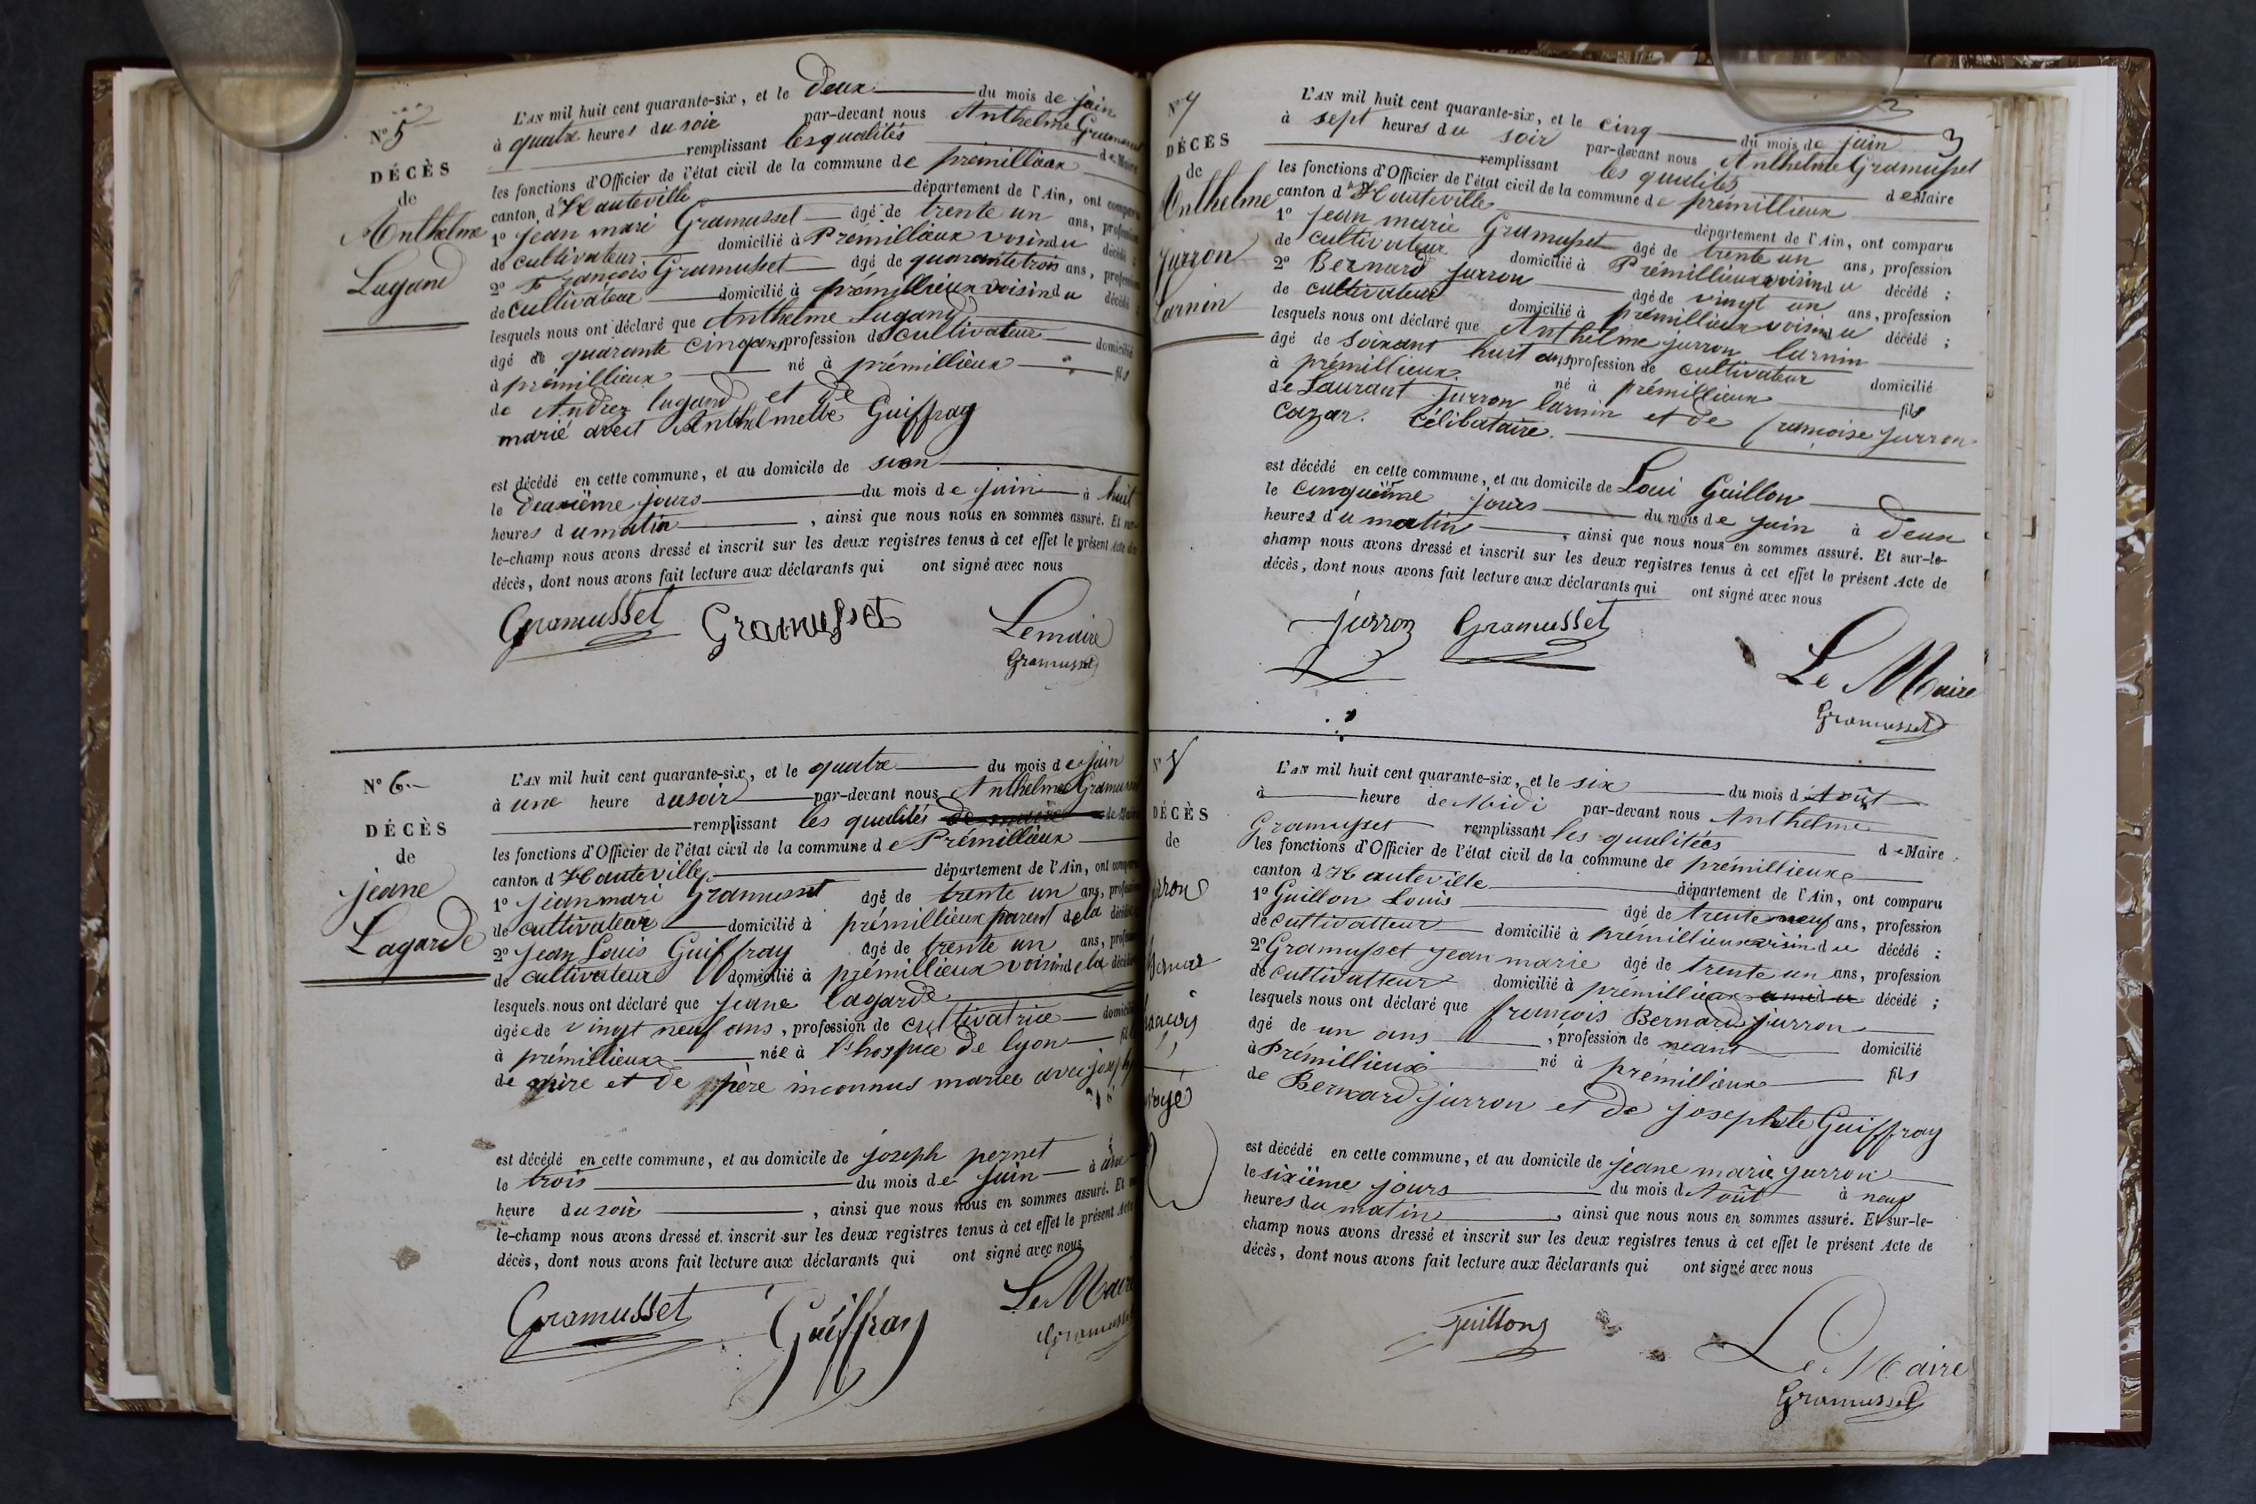 N° 5
DÉCÈS
de
Anthelme
Lugand
L'AN mil huit cent quarante-six, et le deux du mois de juin
à quatre heures du soir par-devant nous Anthelme
remplissant les qualités de Maire
les fonctions d'Officier de l'état civil de la commune de prémillieux
canton d'Hauteville département de l'Ain, ont
1° jean mari Gramusset âgé de trente un ans,
de cultivateur domicilié à Prémillieux voisin du décédé ;
2° François Gramusset âgé de quarante trois ans,
de cultivateur domicilié à prémillieux voisin du décédé
lesquels nous ont déclaré que Anthelme Lugand
âgé de quarante cinq ans, profession de cultivateur domicilié
à prémillieux né à prémillieux fils
de Andrez lugand et de
marié avect Anthelmette Guiffray
est décédé en cette commune, et au domicile de sien
le deuxième jours du mois de juin à huit
heures du matin , ainsi que nous nous en sommes assuré. Et
le-champ nous avons dressé et inscrit sur les deux registres tenus à cet effet le présent Acte de
décès, dont nous avons fait lecture aux déclarants qui ont signé avec nous
Gramusset Gramusset Lemaire
Gramusset
N° 6
DÉCÈS
de
jeane
Lagarde
L'AN mil huit cent quarante-six, et le quatre du mois de juin
à une heure du soir par-devant nous Anthelme
remplissant les qualités de Maire
les fonctions d'Officier de l'état civil de la commune de Prémillieux
canton d'Hauteville département de l'Ain, ont
1° jean mari Gramusset âgé de trente un ans,
de cultivateur domicilié à prémillieux parent de la
2° jean Louis Guiffray âgé de trente un ans,
de cultivateur domicilié à prémillieux voisin de la
lesquels nous ont déclaré que jeane lagarde
âgée de vingt neuf ans, profession de cultivatrice
à prémillieux née à l'hospice de lyon
de mère et de père inconnus mariée avec joseph
est décédé en cette commune, et au domicile de joseph pernet
le trois du mois de juin à une
heure du soir , ainsi que nous nous en sommes assuré. Et
le-champ nous avons dressé et inscrit sur les deux registres tenus à cet effet le présent Acte
décès, dont nous avons fait lecture aux déclarants qui ont signé avec nous
Gramusset Guiffray Le Maire
N° 7
DÉCÈS
de
Anthelme
jurron
larnin
3
L'AN mil huit cent quarante-six, et le cinq du mois de juin
à sept heures du soir par-devant nous Anthelme Gramusset
remplissant les qualités de Maire
les fonctions d'Officier de l'état civil de la commune de prémillieux
canton d'Hauteville département de l'Ain, ont comparu
1° jean marie Gramusset âgé de trente un ans, profession
de cultivateur domicilié à Prémillieux voisin du décédé ;
2° Bernard jurron âgé de vingt un ans, profession
de cultivateur domicilié à prémillieux voisin du décédé ;
lesquels nous ont déclaré que Anthelme jurron larnin
âgé de soixant huit ans, profession de cultivateur domicilié
à prémillieux né à prémillieux fils
de Laurant jurron larnin et de françoise jurron
cazar. célibataire.
est décédé en cette commune, et au domicile de Loui Guillon
le cinquième jours du mois de juin à deux
heures du matin , ainsi que nous nous en sommes assuré. Et sur-le-
champ nous avons dressé et inscrit sur les deux registres tenus à cet effet le présent Acte de
décès, dont nous avons fait lecture aux déclarants qui ont signé avec nous
jurron Gramusset
Le Maire
Gramusset
N° 8
DÉCÈS
de
L'AN mil huit cent quarante-six, et le six du mois d'Août
à heure de Midi par-devant nous Anthelme
Gramusset remplissant les qualitées de Maire
les fonctions d'Officier de l'état civil de la commune de prémillieux
canton d'Hauteville département de l'Ain, ont comparu
1° Guillon Louis âgé de trente neuf ans, profession
de cultivatteur domicilié à prémillieux voisin du décédé :
2° Gramusset jean marie âgé de trente un ans, profession
de cultivatteur domicilié à prémillieux ami du décédé ;
lesquels nous ont déclaré que françois Bernard jurron
âgé de un ans , profession de néant domicilié
à Prémillieux né à prémillieux fils
de Bernard jurron et de josephte Guiffray
est décédé en cette commune, et au domicile de jeane marie jurron
le sixième jours du mois d'Août à neuf
heures du matin , ainsi que nous nous en sommes assuré. Et sur-le-
champ nous avons dressé et inscrit sur les deux registres tenus à cet effet le présent Acte de
décès, dont nous avons fait lecture aux déclarants qui ont signé avec nous
Guillon
Le Maire
Gramusset